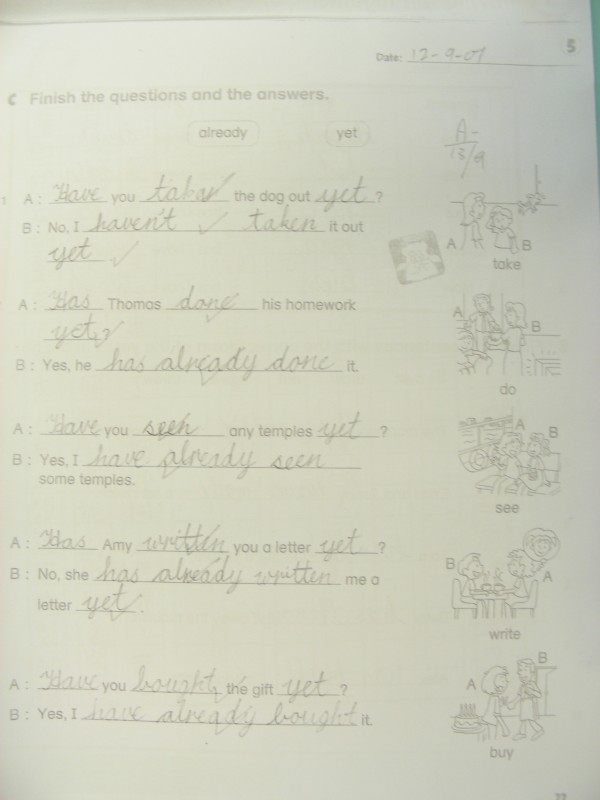 5
Date: 12-9-07
C Finish the questions and the answers.
already yet
A-
1 A: Have you taken the dog out yet ?
B: No, I haven't taken it out
yet
A B
take
A: Has Thomas done his homework
yet ?
B: Yes, he has already done it.
A B
do
A: Have you seen any temples yet ?
B: Yes, I have already seen
some temples.
A B
see
A: Has Amy written you a letter yet ?
B: No, she has already written me a
letter yet .
B A
write
A: Have you bought the gift yet ?
B: Yes, I have already bought it.
A B
buy